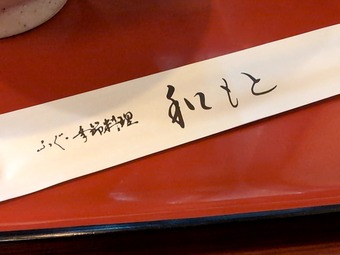 ふぐ・季節料理 和もと